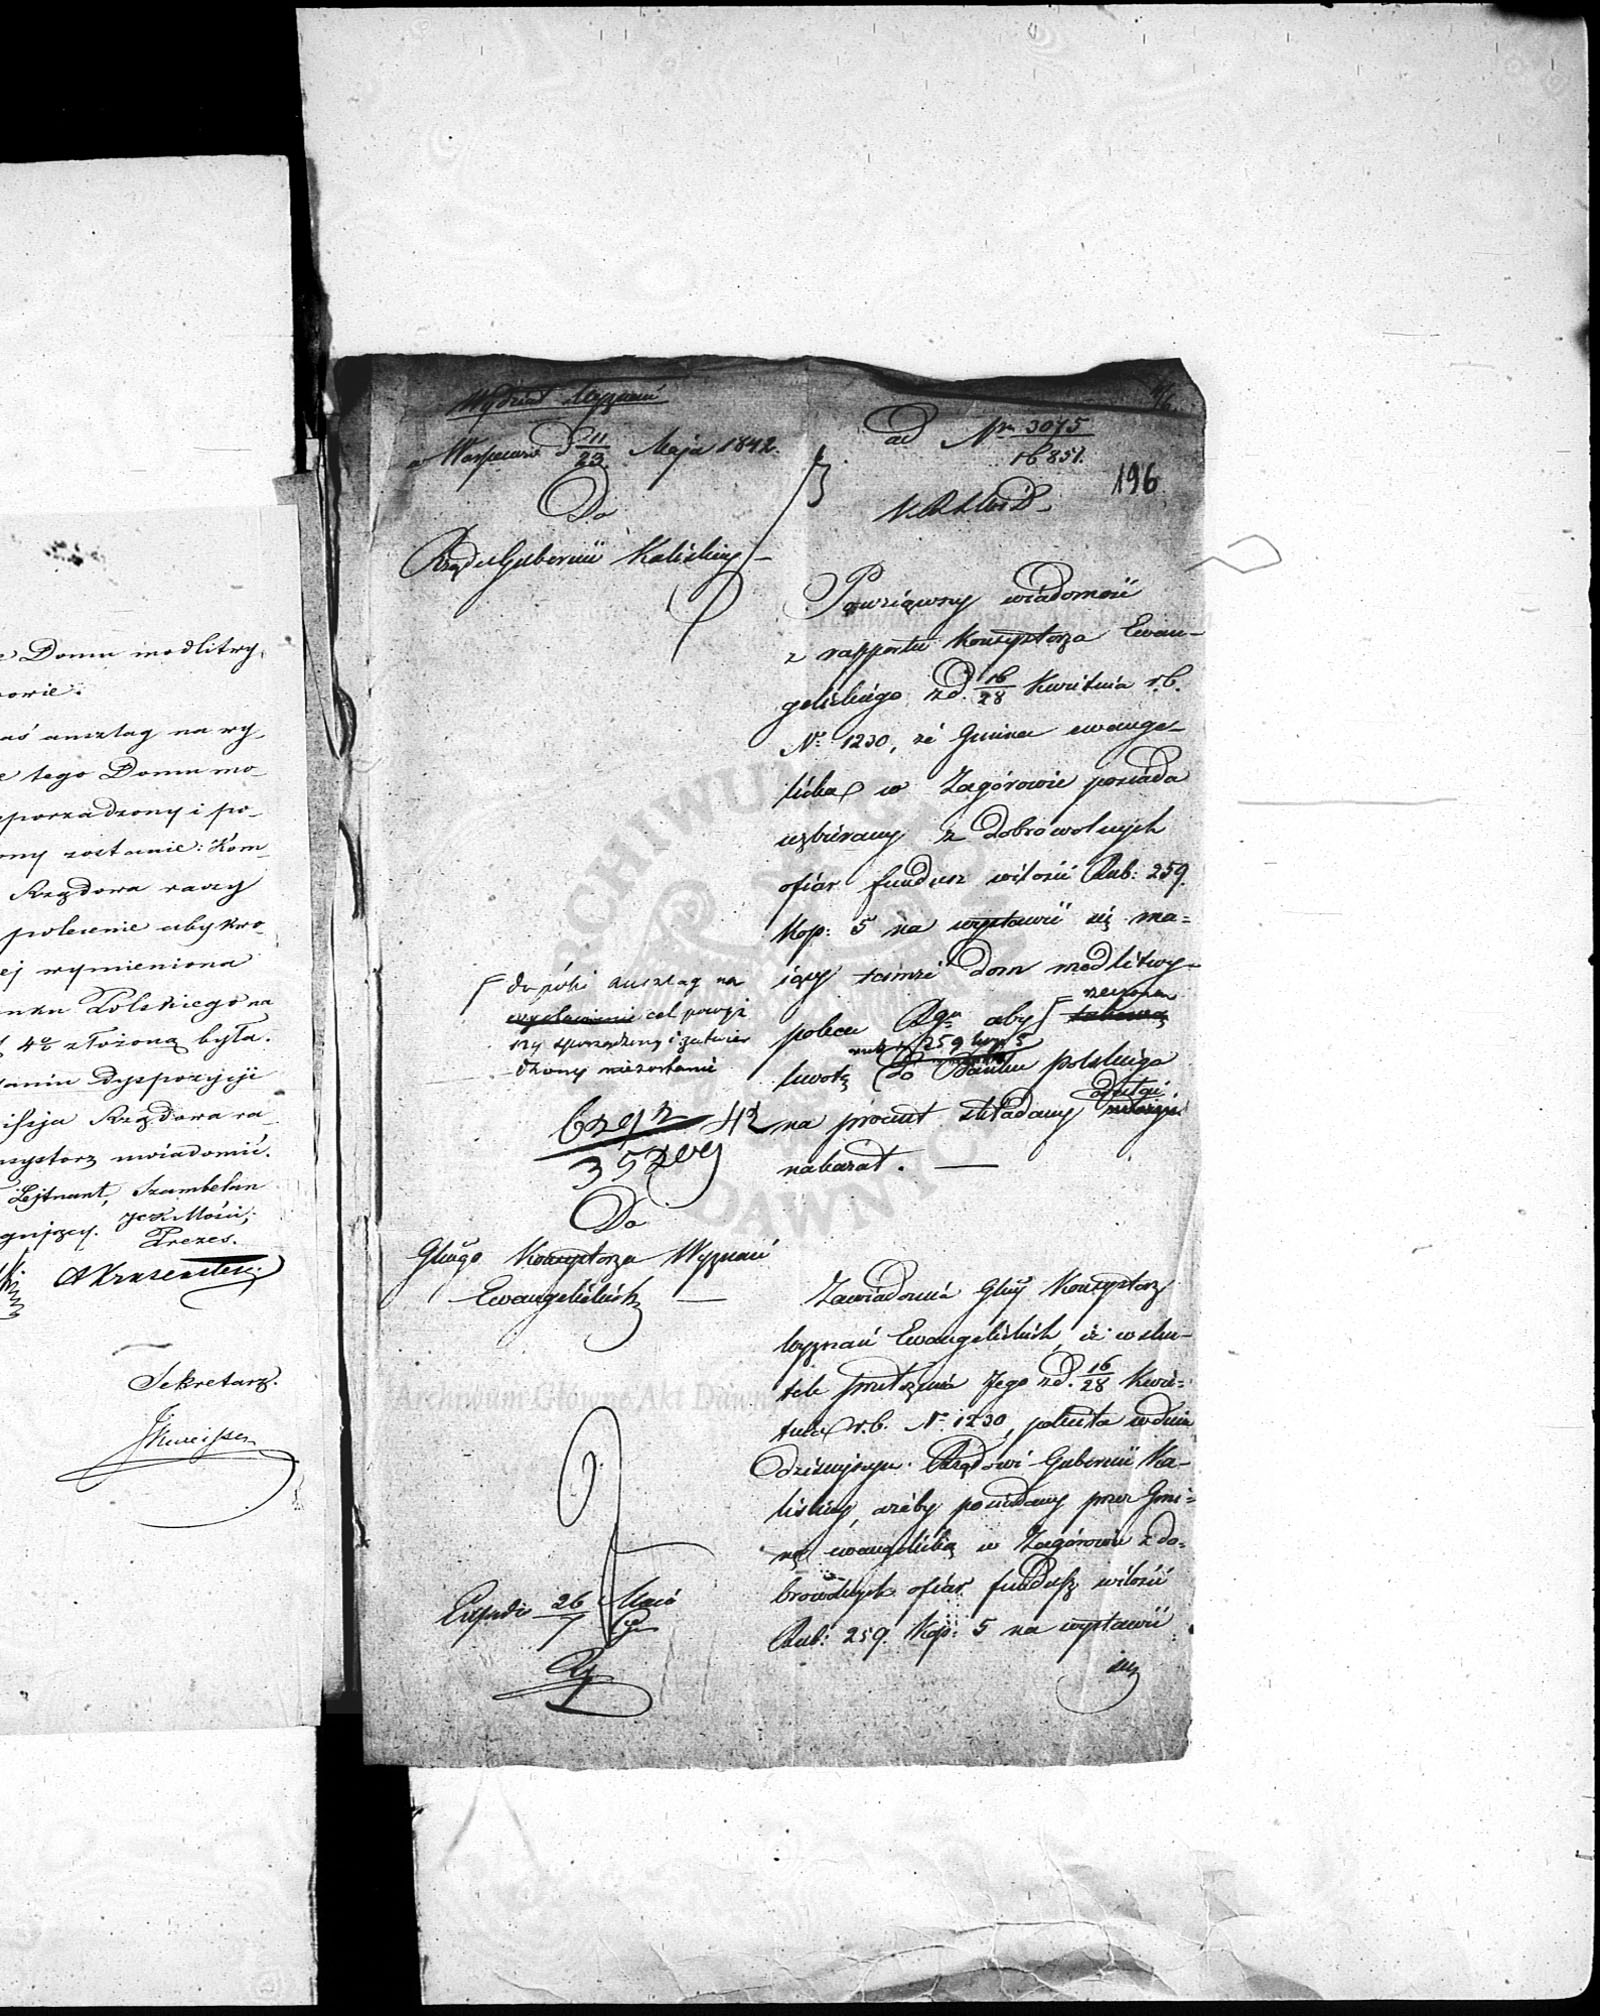 e Domu modlitwy
owie.
aś anszlag na wy-
e tego Domu mo-
porządzony i po-
ony zostanie: Kom-
Rządowa raczy
polecenie aby kwo-
ej wymieniona
nku Polskiego na
4% złożoną była.
daniu Dyspozycyi
issja Rządowa ra-
nsystorz uwiadomić.
Lejtnant, Szambelan
JCK Mości,
Prezes.
Sekretarz.
Wydział Wyznań
w Warszawie d 11/23 Maja 1842.
Do
Rządu Gubernii Kaliskiej
ad Nr 3075/16851.
196
K.R.S.W.i D.
Powziąwszy wiadomość
z rapportu Konsystorza Ewan-
gelickiego z d. 16/28 Kwietnia r.b.
Nr 1230, że Gmina ewange-
licka w Zagórowie posiada
uzbierany z dobrowolnych
ofiar fundusz w ilości Rub: 259.
Kop: 5 na wystawić się ma-
iący tamże dom modlitwy-
poleca Rząd. aby rzeczoną
kwotę rub sr 259 kop 5
do Banku polskiego
na procent składany
nakazał. —
dopóki anszlag na
cel powyż
szy sporządzony i zatwier
dzony niezostanie
Do
Głłgo Konsystorza Wyznań
Ewangelickich —
Zawiadamia Głły Konsystorz
Wyznań Ewangelickich, iż w sku-
tek przełożenia Jego z d. 16/28 Kwie-
tnia r.b. Nr 1230, poleciła w dniu
dzisiejszym Rządowi Gubernii Ka-
liskiej, ażeby posiadany przez Gmi-
nę ewangelicką w Zagórowie z do-
browolnych ofiar fundusz w ilości
Rub: 259. Kop: 5 na wystawić
się
Exped. 26 Maia
Archiwum Główne Akt Dawnych